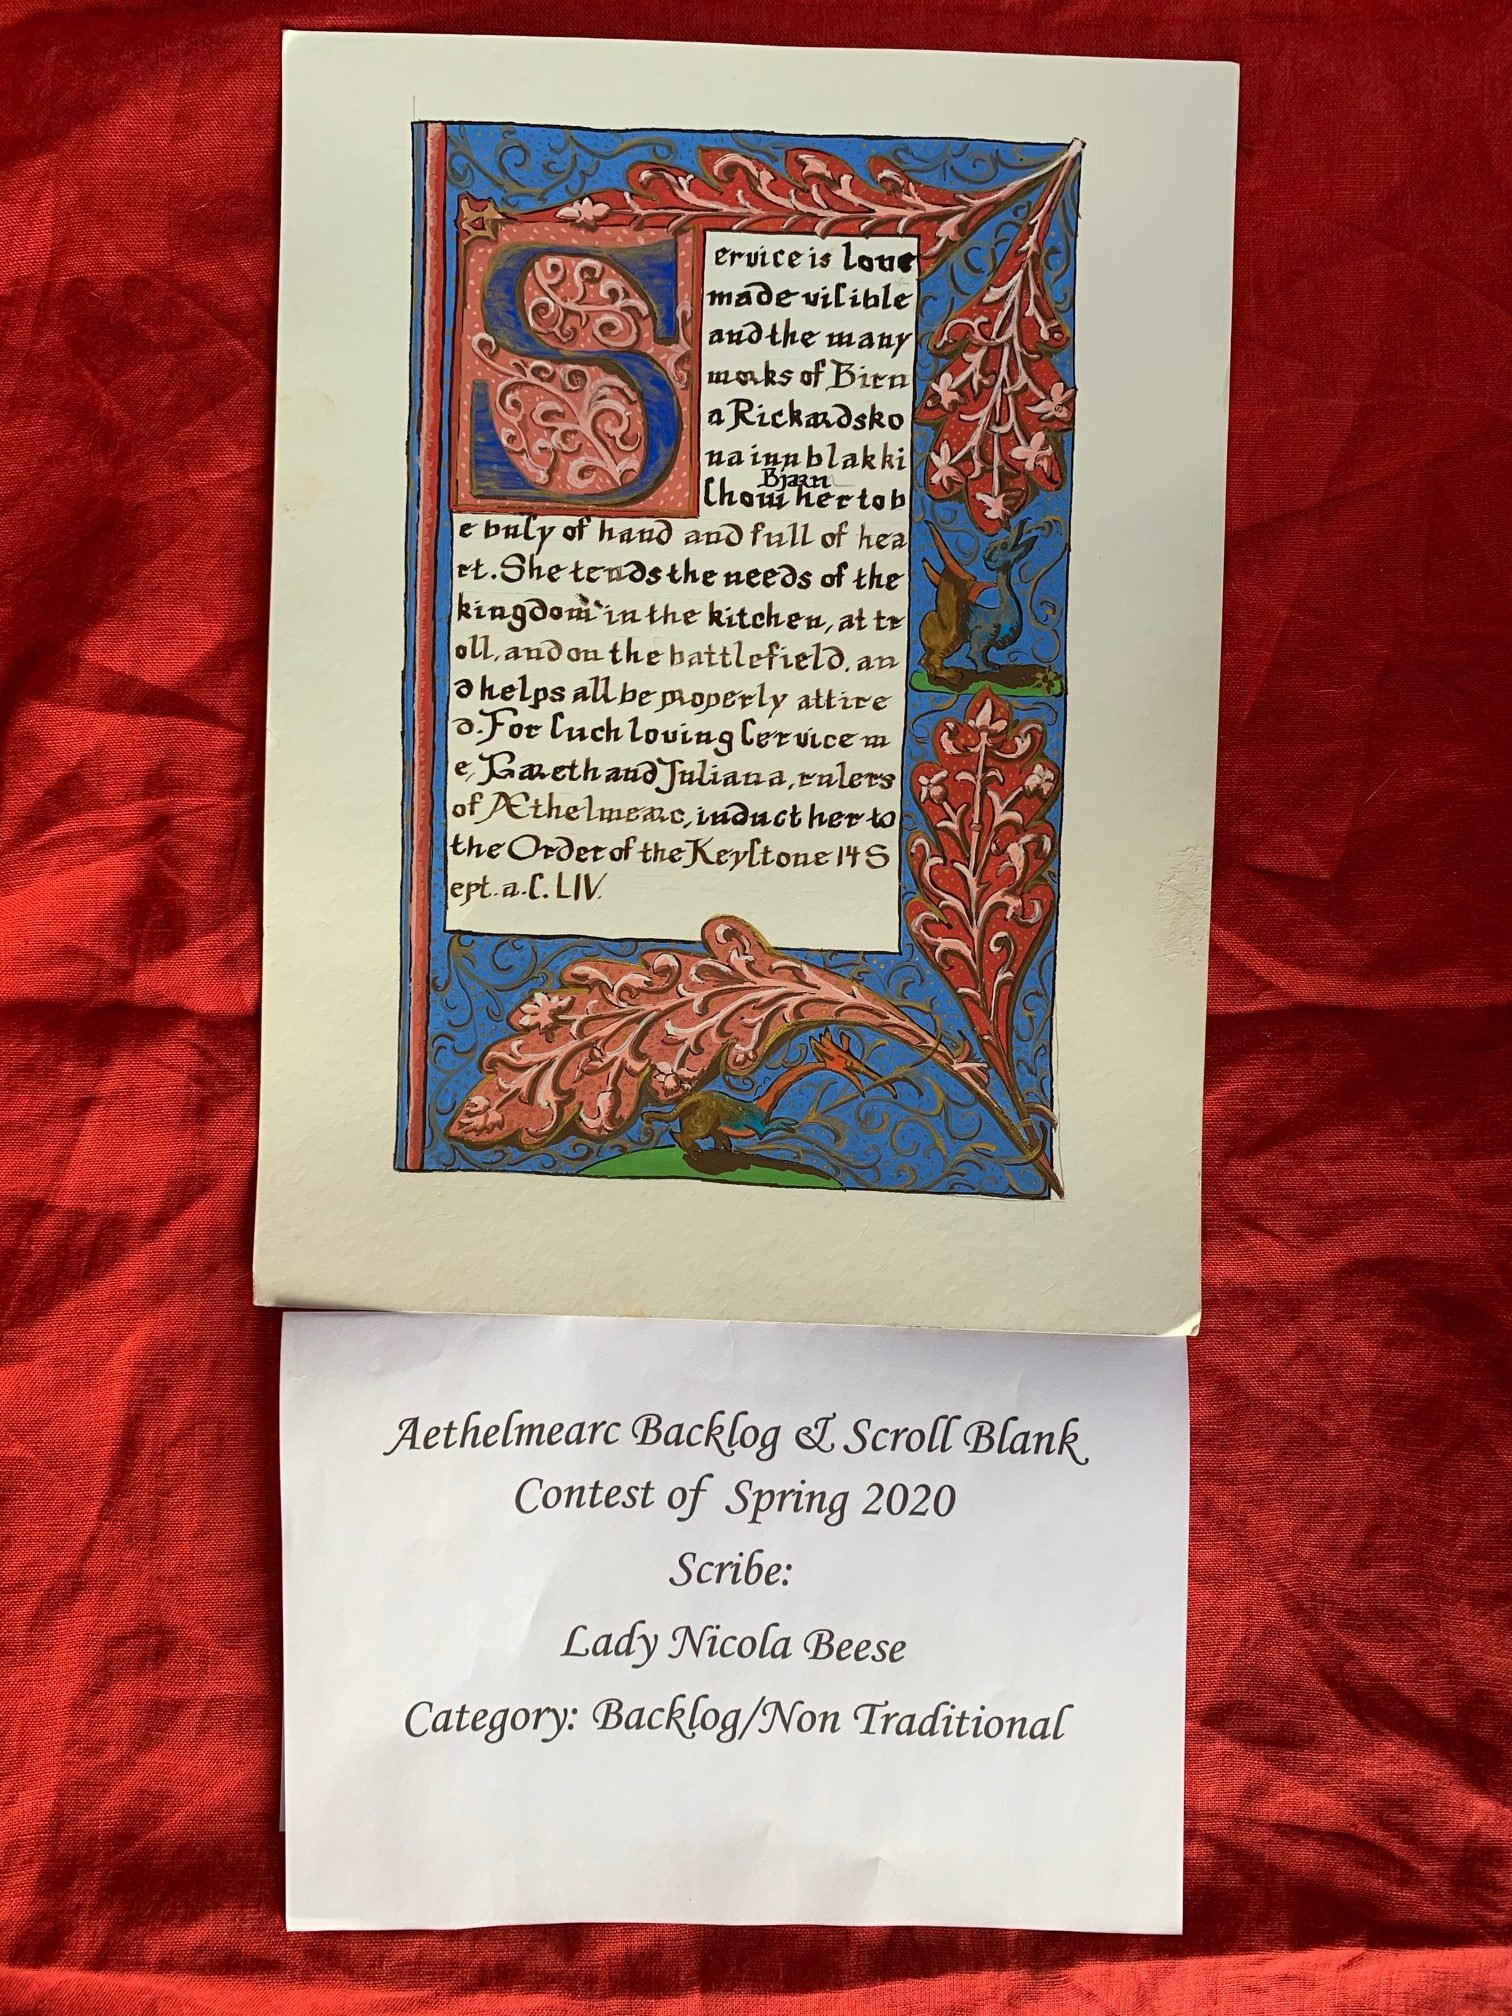 Service is love
made viſible
and the many
works of Birn
a Rickardsko
na inn blakki
Bjarn
ſhow her to b
e buſy of hand and full of hea
rt. She tends the needs of the
kingdom in the kitchen, at tr
oll, and on the battlefield, an
d helps all be properly attire
d. For ſuch loving ſervice w
e, Gareth and Juliana, rulers
of Æthelmearc, induct her to
the Order of the Keyſtone 14 S
ept. a.ſ. LIV.
Aethelmearc Backlog & Scroll Blank
Contest of Spring 2020
Scribe:
Lady Nicola Beese
Category: Backlog/Non Traditional